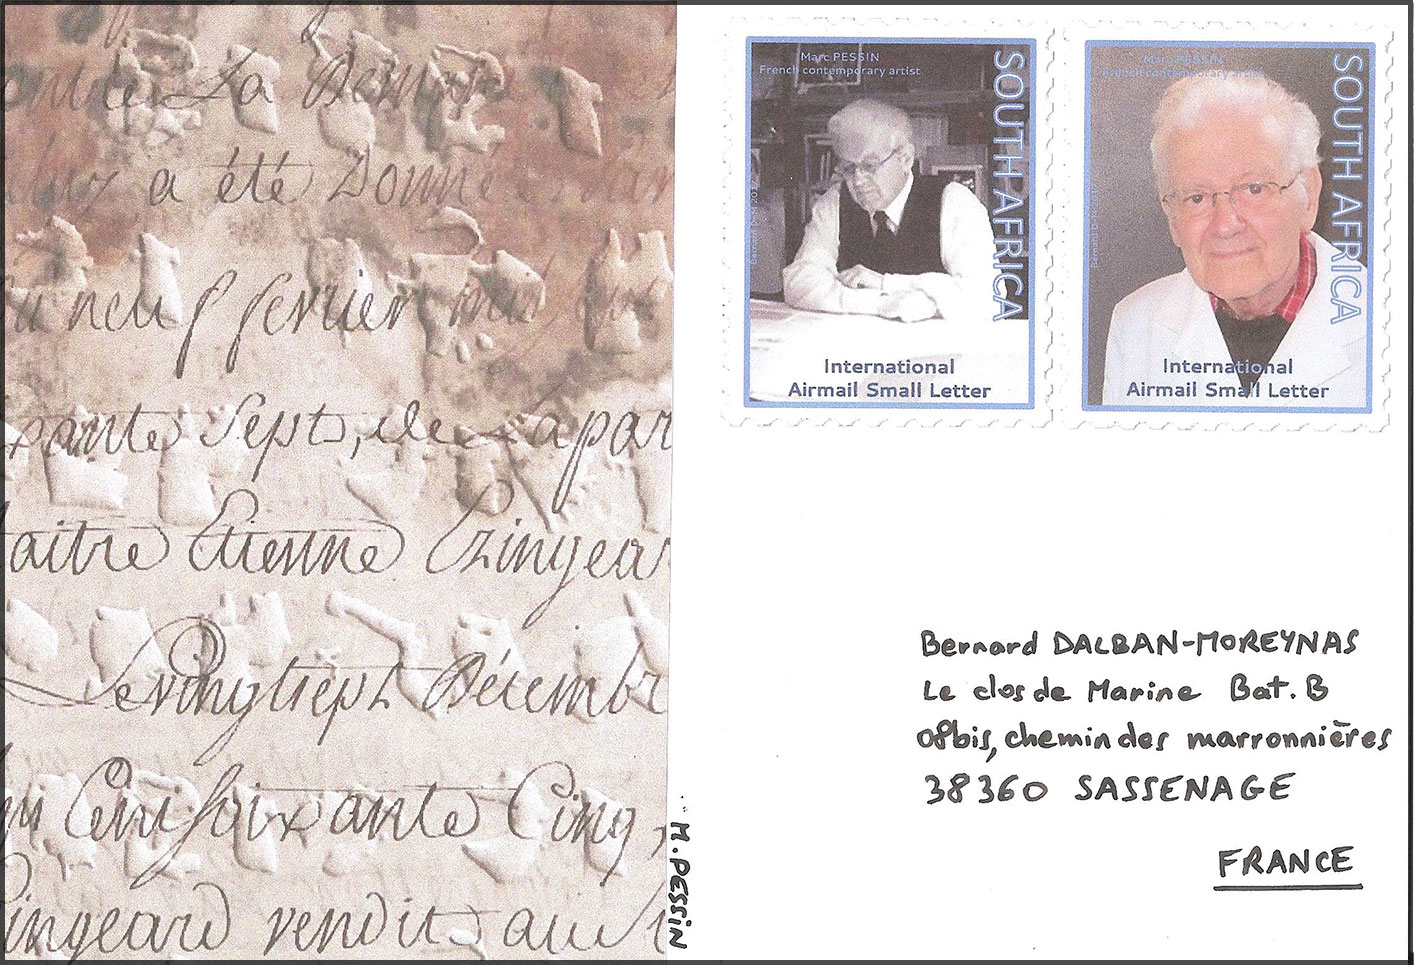 La Demi
a été Donné
neuf fevrier
xante Sept, de La par
aitre Etienne Chingear
Le vingtsept Décembr
Cent soixante Cinq,
ingeard vendit au
M. PESSIN
Marc PESSIN
French contemporary artist
SOUTH AFRICA
International
Airmail Small Letter
Marc PESSIN
French contemporary artist
SOUTH AFRICA
International
Airmail Small Letter
Bernard DALBAN-MOREYNAS
Le clos de Marine Bat. B
08bis, chemin des marronnières
38360 SASSENAGE
FRANCE